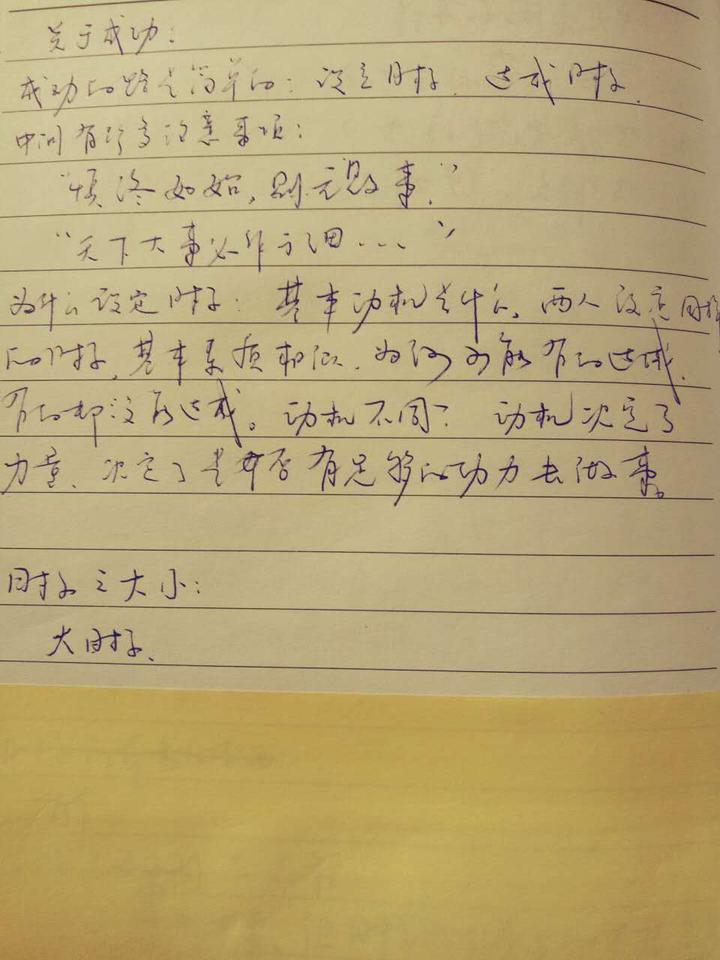 关于成功：
成功的路是简单的：设定目标、达成目标
中间有许多注意事项：
“慎终如始，则无败事。”
“天下大事必作于细....”
为什么设定目标：其本动机是什么。两人设定同样
的目标，其本素质相似，为何有的达成，
有的却没有达成。动机不同？ 动机决定了
力量、决定了是否有足够的功力去做事。
目标之大小：
大目标、